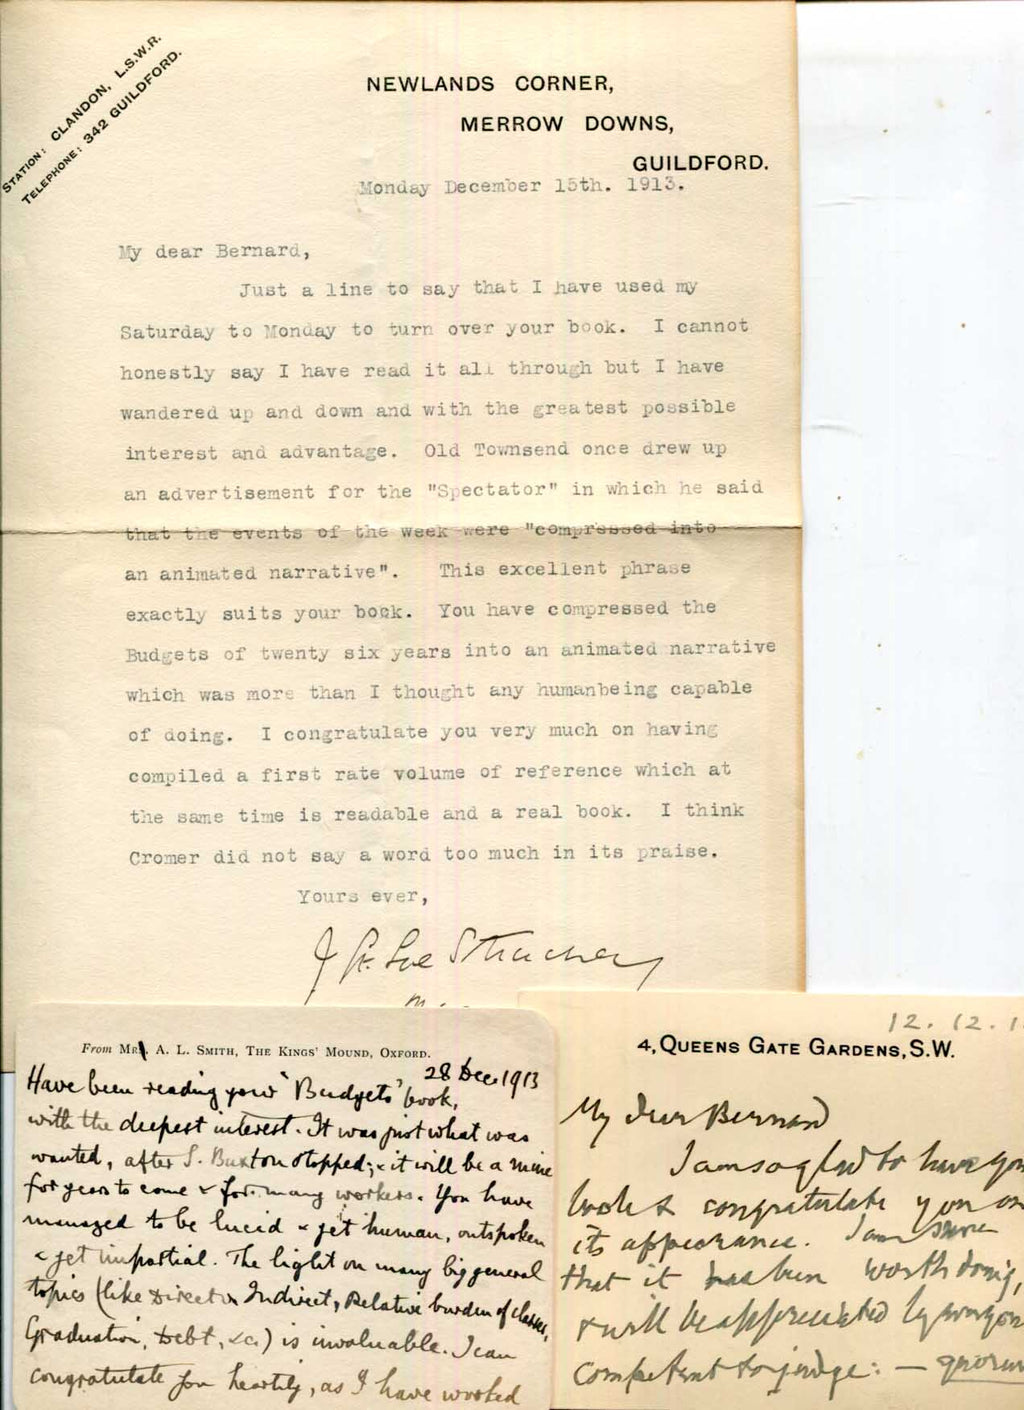 STATION: CLANDON, L.S.W.R.
TELEPHONE: 342 GUILDFORD.
NEWLANDS CORNER,
MERROW DOWNS,
GUILDFORD.
Monday December 15th. 1913.
My dear Bernard,
Just a line to say that I have used my
Saturday to Monday to turn over your book. I cannot
honestly say I have read it all through but I have
wandered up and down and with the greatest possible
interest and advantage. Old Townsend once drew up
an advertisement for the "Spectator" in which he said
that the events of the week were "compressed into
an animated narrative". This excellent phrase
exactly suits your book. You have compressed the
Budgets of twenty six years into an animated narrative
which was more than I thought any humanbeing capable
of doing. I congratulate you very much on having
compiled a first rate volume of reference which at
the same time is readable and a real book. I think
Cromer did not say a word too much in its praise.
Yours ever,
J St. Loe Strachey
From MR. A. L. SMITH, THE KINGS' MOUND, OXFORD.
28 Dec. 1913
Have been reading your 'Budgets' book,
with the deepest interest. It was just what was
wanted, after S. Buxton stopped; & it will be a mine
for years to come & for many workers. You have
managed to be lucid & yet human, outspoken
& yet impartial. The light on many big general
topics (like Direct v Indirect, Relative burden of classes,
Graduation, Debt, &c.) is invaluable. I can
congratulate you heartily, as I have worked
12. 12. 1
4, QUEENS GATE GARDENS, S.W.
My dear Bernard
I am so glad to have you
book & congratulate you on
its appearance. I am sure
that it has been worth doing,
& will be appreciated by
competent to judge: —